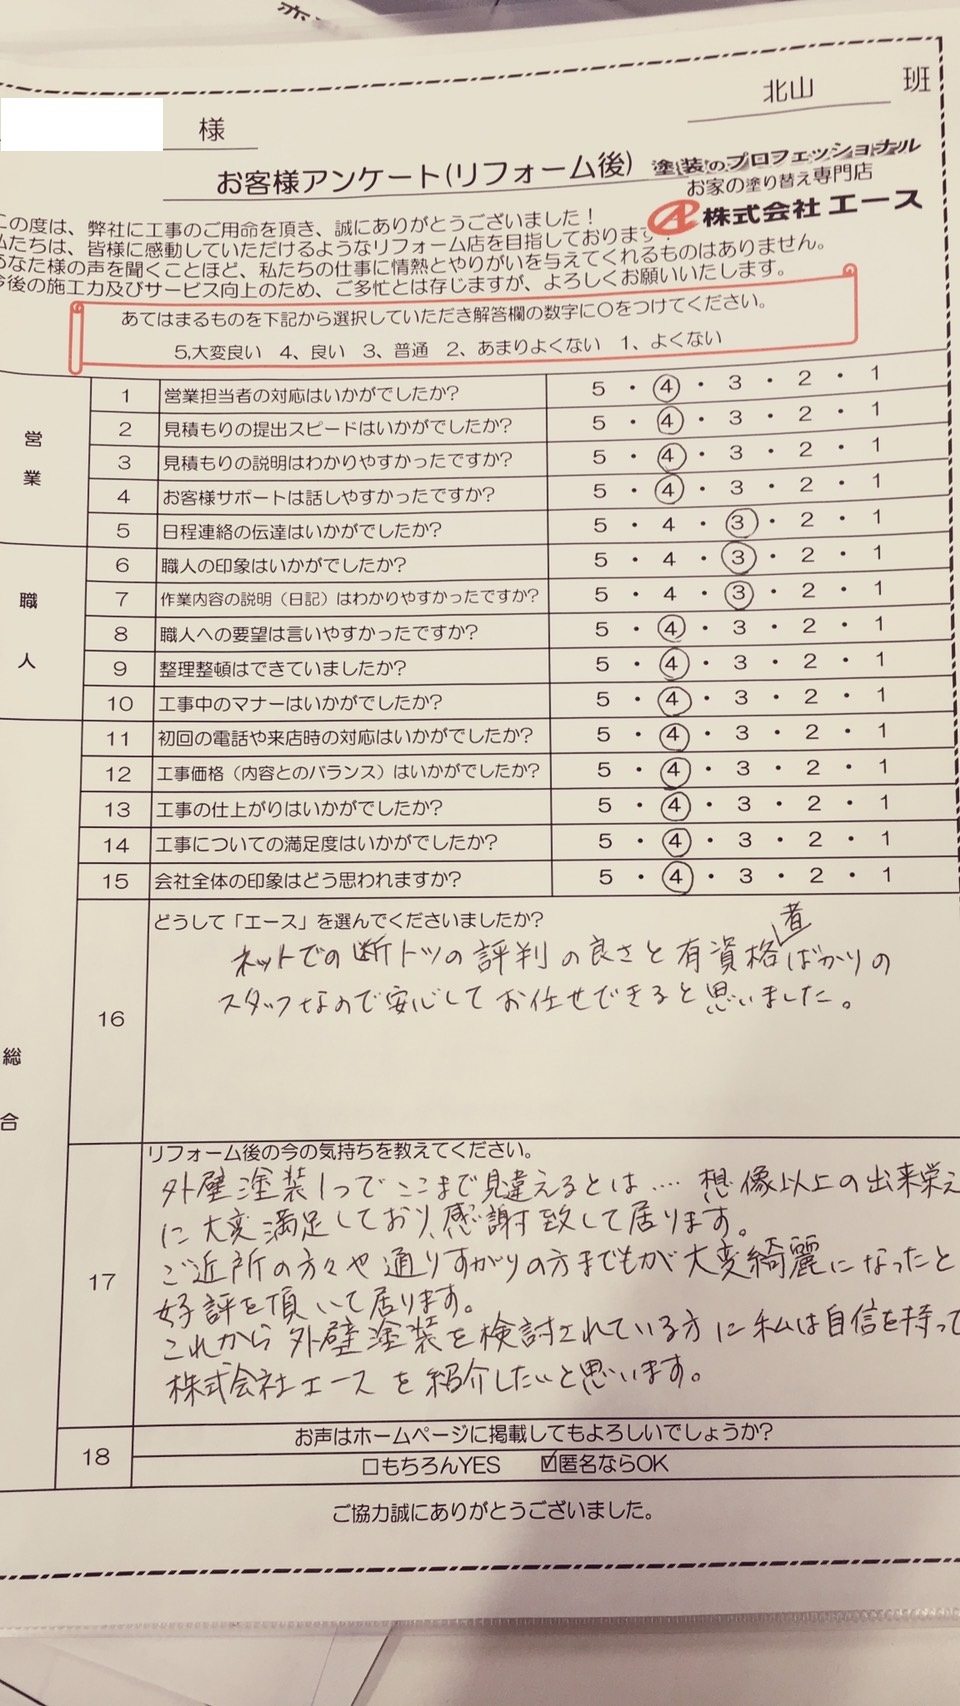 北山 班
様
お客様アンケート(リフォーム後)
塗装のプロフェッショナル
お家の塗り替え専門店
株式会社エース
この度は、弊社に工事のご用命を頂き、誠にありがとうございました！
私たちは、皆様に感動していただけるようなリフォーム店を目指しております！
あなた様の声を聞くことほど、私たちの仕事に情熱とやりがいを与えてくれるものはありません。
今後の施工力及びサービス向上のため、ご多忙とは存じますが、よろしくお願いいたします。
あてはまるものを下記から選択していただき解答欄の数字に〇をつけてください。
5,大変良い 4、良い 3、普通 2、あまりよくない 1、よくない
営業
1 営業担当者の対応はいかがでしたか? 5・④・3・2・1
2 見積もりの提出スピードはいかがでしたか? 5・④・3・2・1
3 見積もりの説明はわかりやすかったですか? 5・④・3・2・1
4 お客様サポートは話しやすかったですか? 5・④・3・2・1
5 日程連絡の伝達はいかがでしたか? 5・4・③・2・1
職人
6 職人の印象はいかがでしたか? 5・4・③・2・1
7 作業内容の説明（日記）はわかりやすかったですか? 5・4・③・2・1
8 職人への要望は言いやすかったですか? 5・④・3・2・1
9 整理整頓はできていましたか? 5・④・3・2・1
10 工事中のマナーはいかがでしたか? 5・④・3・2・1
総合
11 初回の電話や来店時の対応はいかがでしたか? 5・④・3・2・1
12 工事価格（内容とのバランス）はいかがでしたか? 5・④・3・2・1
13 工事の仕上がりはいかがでしたか? 5・④・3・2・1
14 工事についての満足度はいかがでしたか? 5・④・3・2・1
15 会社全体の印象はどう思われますか? 5・④・3・2・1
16 どうして「エース」を選んでくださいましたか?
ネットでの断トツの評判の良さと有資格者ばかりの
スタッフなので安心してお任せできると思いました。
17 リフォーム後の今の気持ちを教えてください。
外壁塗装1つでここまで見違えるとは…. 想像以上の出来栄え
に大変満足しており、感謝致して居ります。
ご近所の方々や通りすがりの方までもが大変綺麗になったと
好評を頂いて居ります。
これから外壁塗装を検討されている方に私は自信を持って
株式会社エースを紹介したいと思います。
18 お声はホームページに掲載してもよろしいでしょうか?
□もちろんYES ☑匿名ならOK
ご協力誠にありがとうございました。